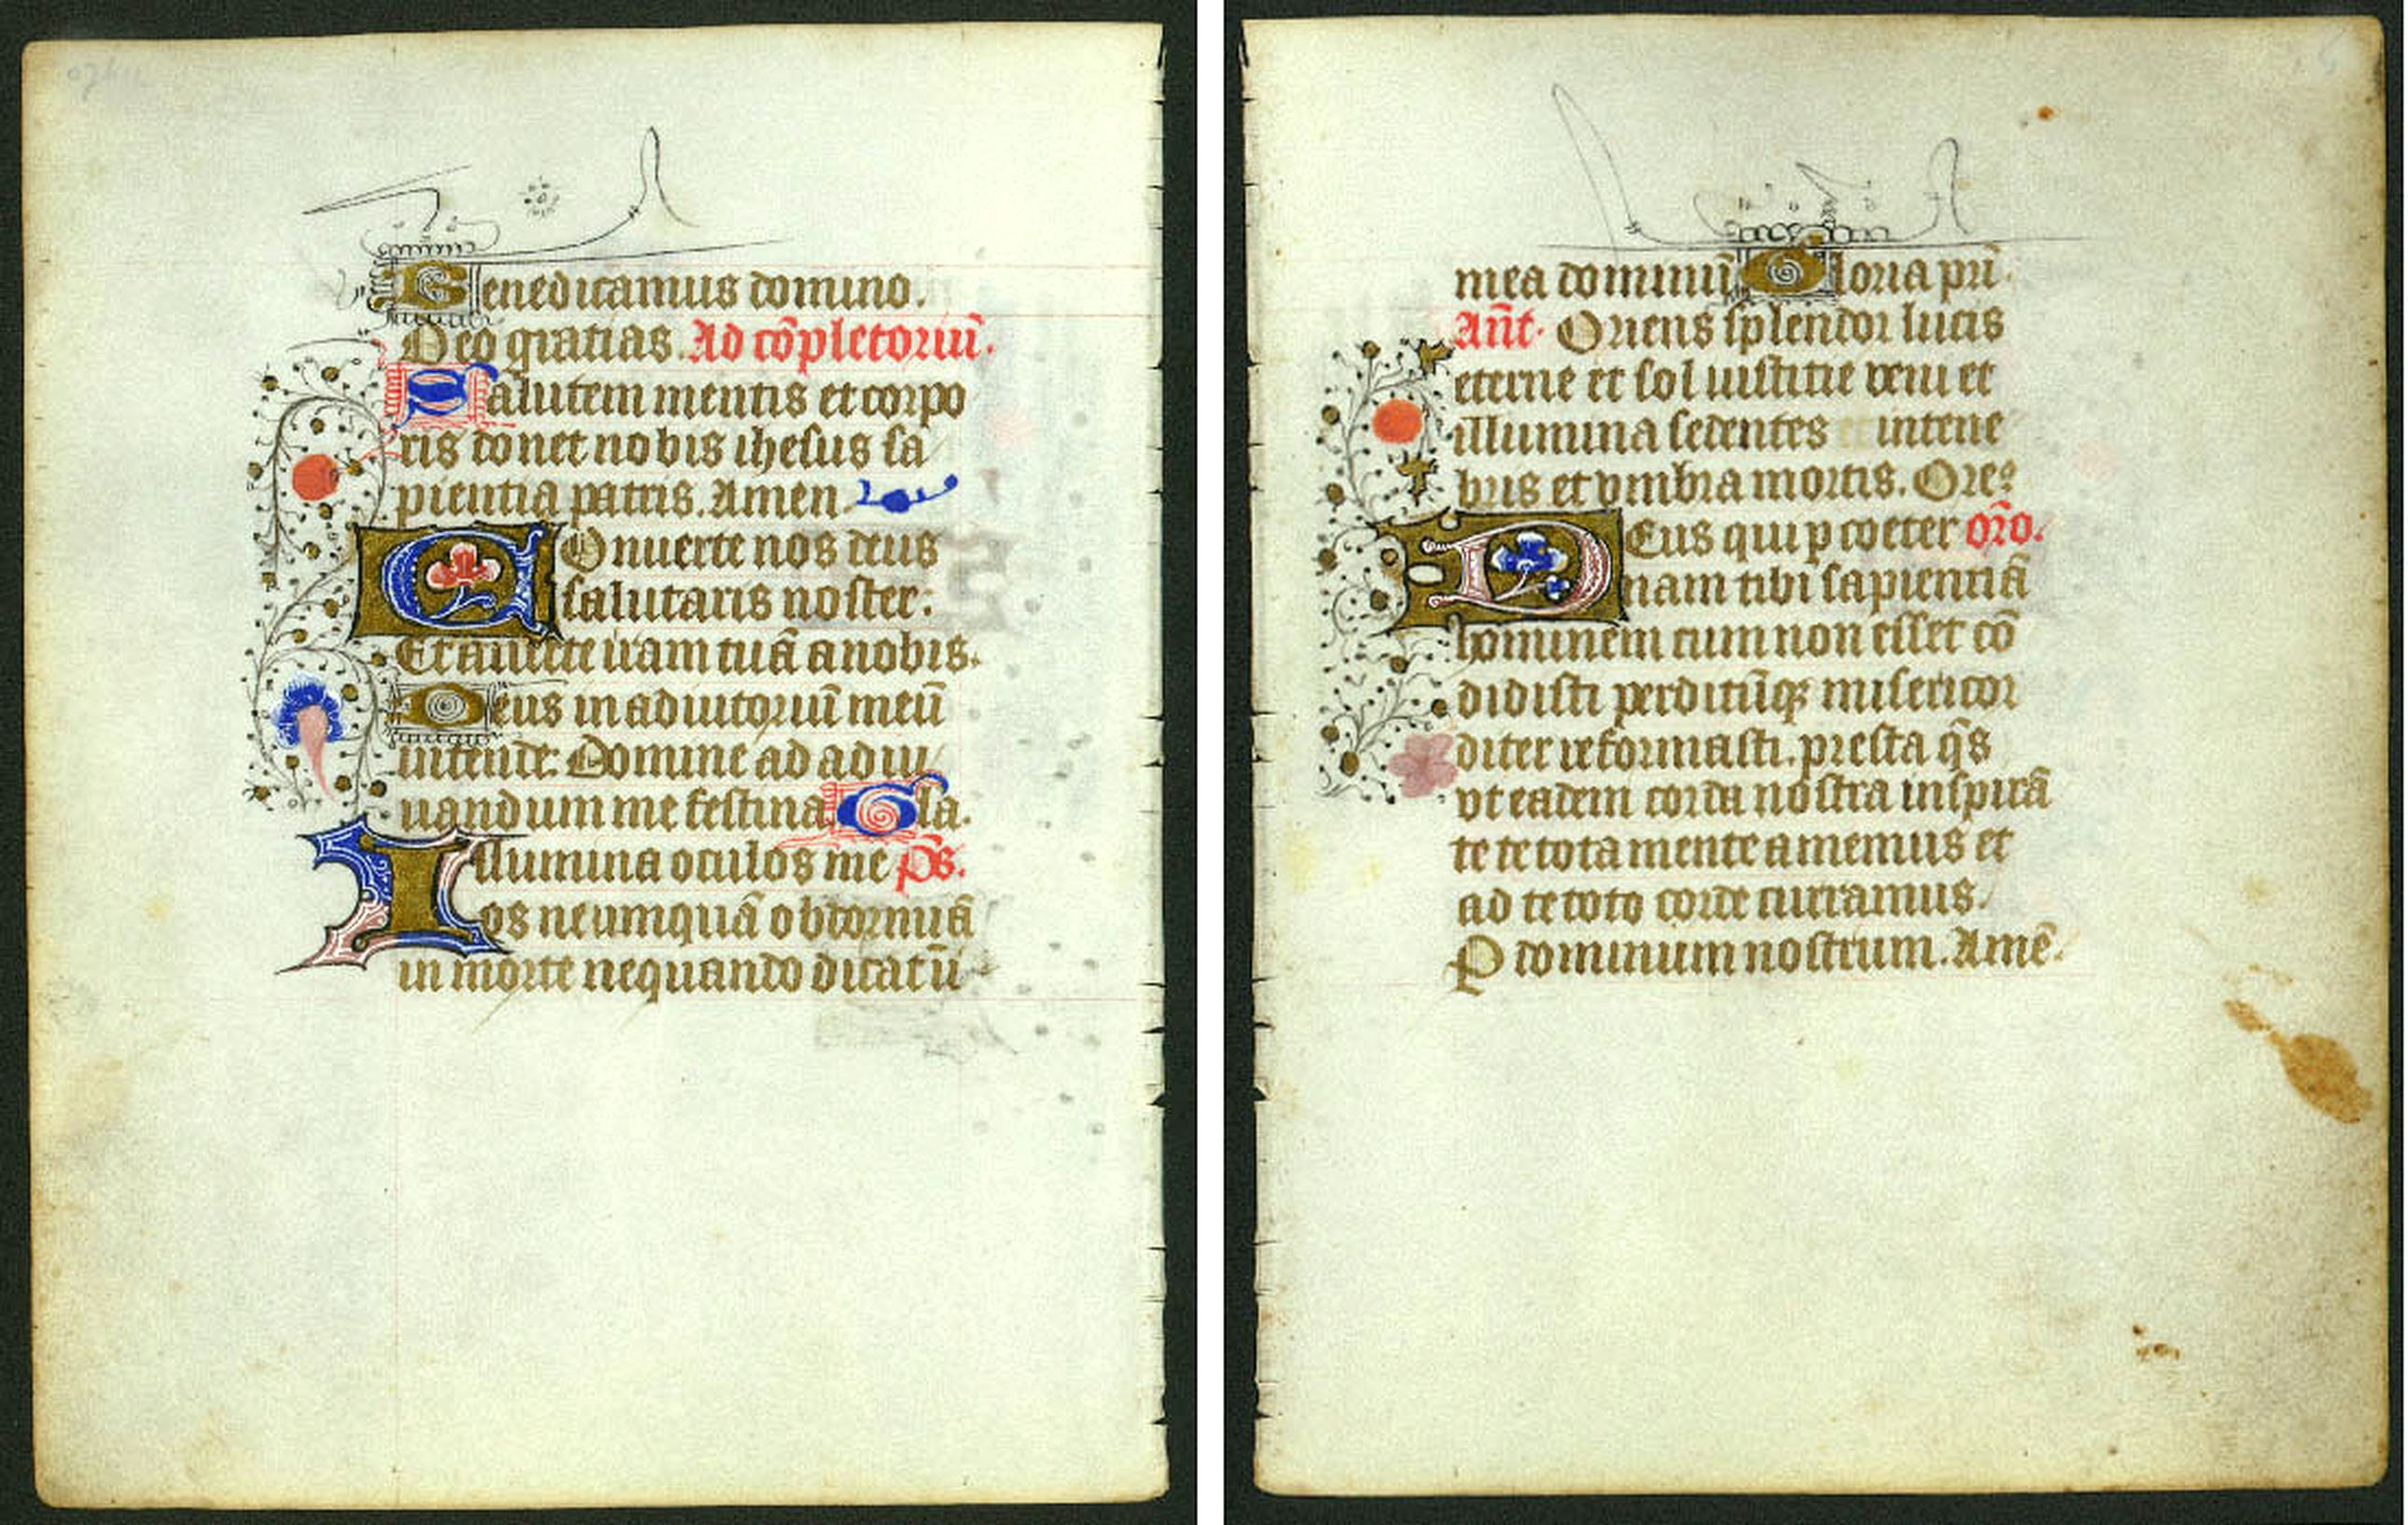 Benedicamus domino.
Deo gratias. Ad cōpletoriū.
Salutem mentis et corpo
ris donet nobis ihesus sa
pientia patris. Amen
COnuerte nos deus
salutaris noster:
Et auerte iram tuā a nobis.
Deus in adiutoriū meū
intende: Domine ad adiu
uandum me festina. Gla.
Illumina oculos me p̄s.
os neumquā obdormiā
in morte nequando dicat ū
mea dominū Gloria pri
Añt. Oriens splendor lucis
eterne et sol iustitie veni et
illumina sedentes intene
bris et vmbra mortis.
DEus qui p coeter oro.
nam tibi sapientiā
hominem cum non esset cō
didisti perditūq; misericor
diter reformasti. presta q̄s
vt eadem corda nostra inspirā
te te tota mente amemus et
ad te toto corde curramus.
P dominum nostrum. Amē.